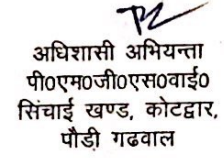 अधिशासी अभियन्ता
पी०एम०जी०एस०वाई०
सिंचाई खण्ड, कोटद्वार,
पौड़ी गढवाल